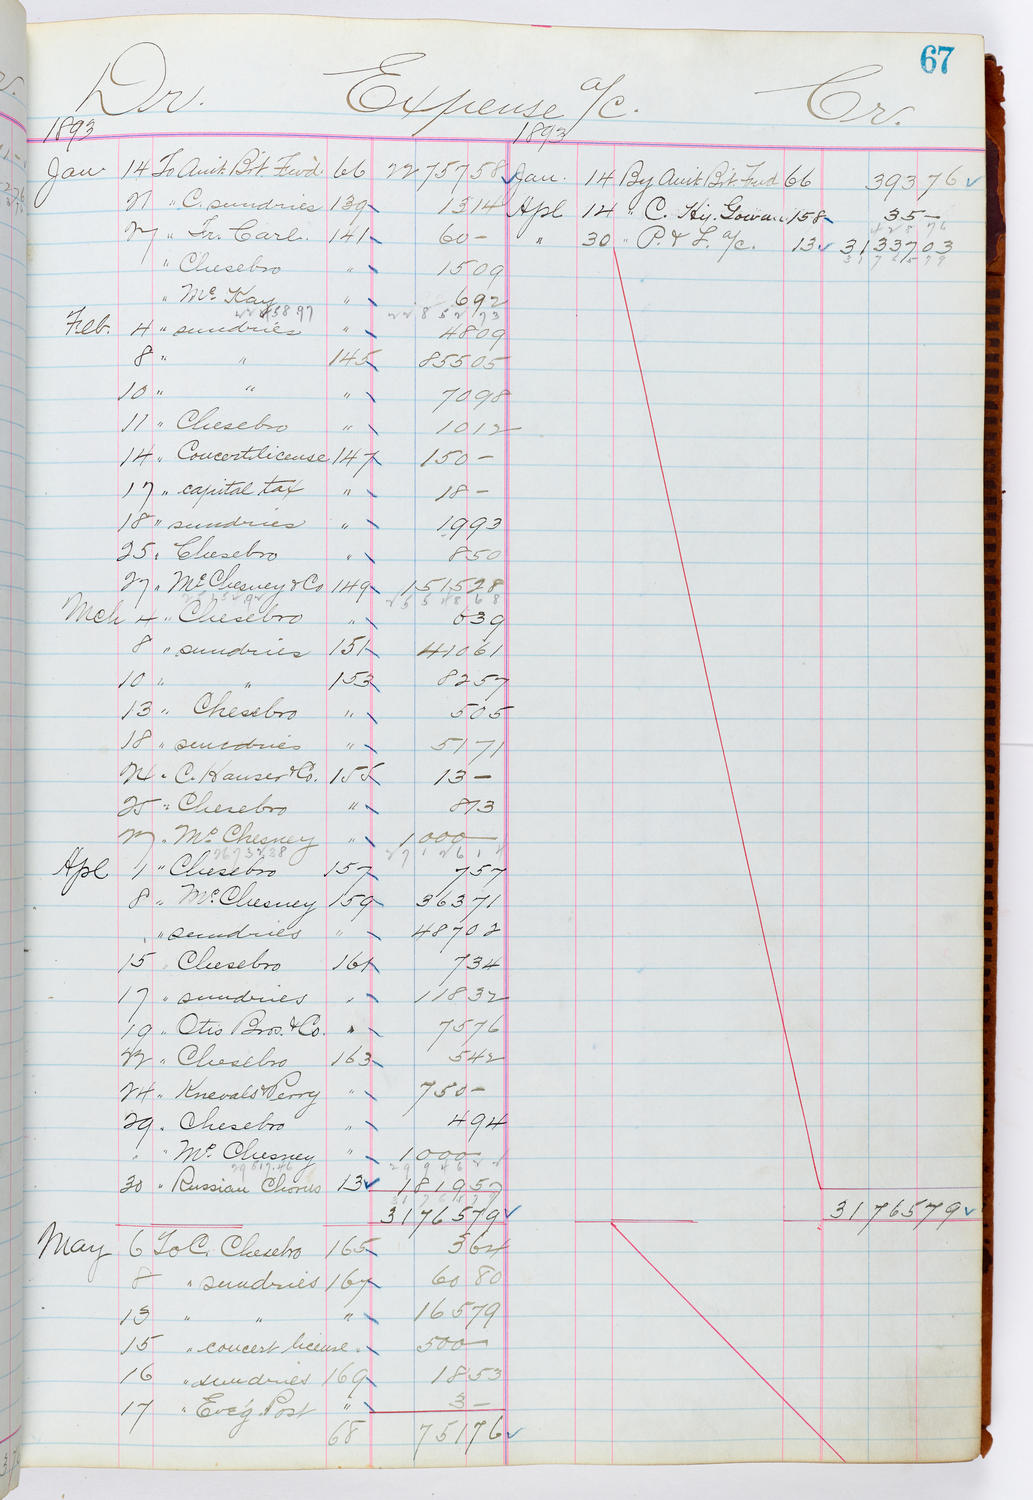 67
Dr. Expense a/c. Cr.
1893 1893
Jan 14 To Amt. Bt. Fwd. 66 22 757 58 Jan. 14 By Amt. Bt. Fwd 66 393 76
21 " C. sundries 139 13 14 Apl 14 " C. Hy. Gowan 158 35 –
27 " Tr. Carl. 141 60 – " 30 " P. & L. a/c. 13 31 337 03
" Chesebro " 15 09
" Mc Kay " 6 92
Feb. 4 " sundries " 48 09
8 " " 145 855 05
10 " " " 70 98
11 " Chesebro " 10 12
14 " Concert license 147 150 –
17 " capital tax " 18 –
18 " sundries " 19 93
25 " Chesebro " 8 50
27 " McChesney & Co 149 1 515 28
Mch 4 " Chesebro " 6 39
8 " sundries 151 410 61
10 " " 153 82 57
13 " Chesebro " 5 05
18 " sundries " 51 71
24 " C. Hauser & Co. 155 13 –
25 " Chesebro " 8 73
27 " Mc Chesney " 1 000 –
Apl 1 " Chesebro 157 7 57
8 " McChesney 159 363 71
" " sundries " 487 02
15 " Chesebro 161 7 34
17 " sundries " 118 32
19 " Otis Bros. & Co. " 75 76
22 " Chesebro 163 5 42
24 " Knevals & Perry " 750 –
29 " Chesebro " 4 94
" " Mc Chesney " 1 000
30 " Russian Chorus 13 1 819 57
31 765 79 31 765 79
May 6 To C. Chesebro 165 3 64
8 " sundries 167 60 80
13 " " " 165 79
15 " concert license " 500 –
16 " sundries 169 18 53
17 " Eve'g Post " 3 –
68 751 76